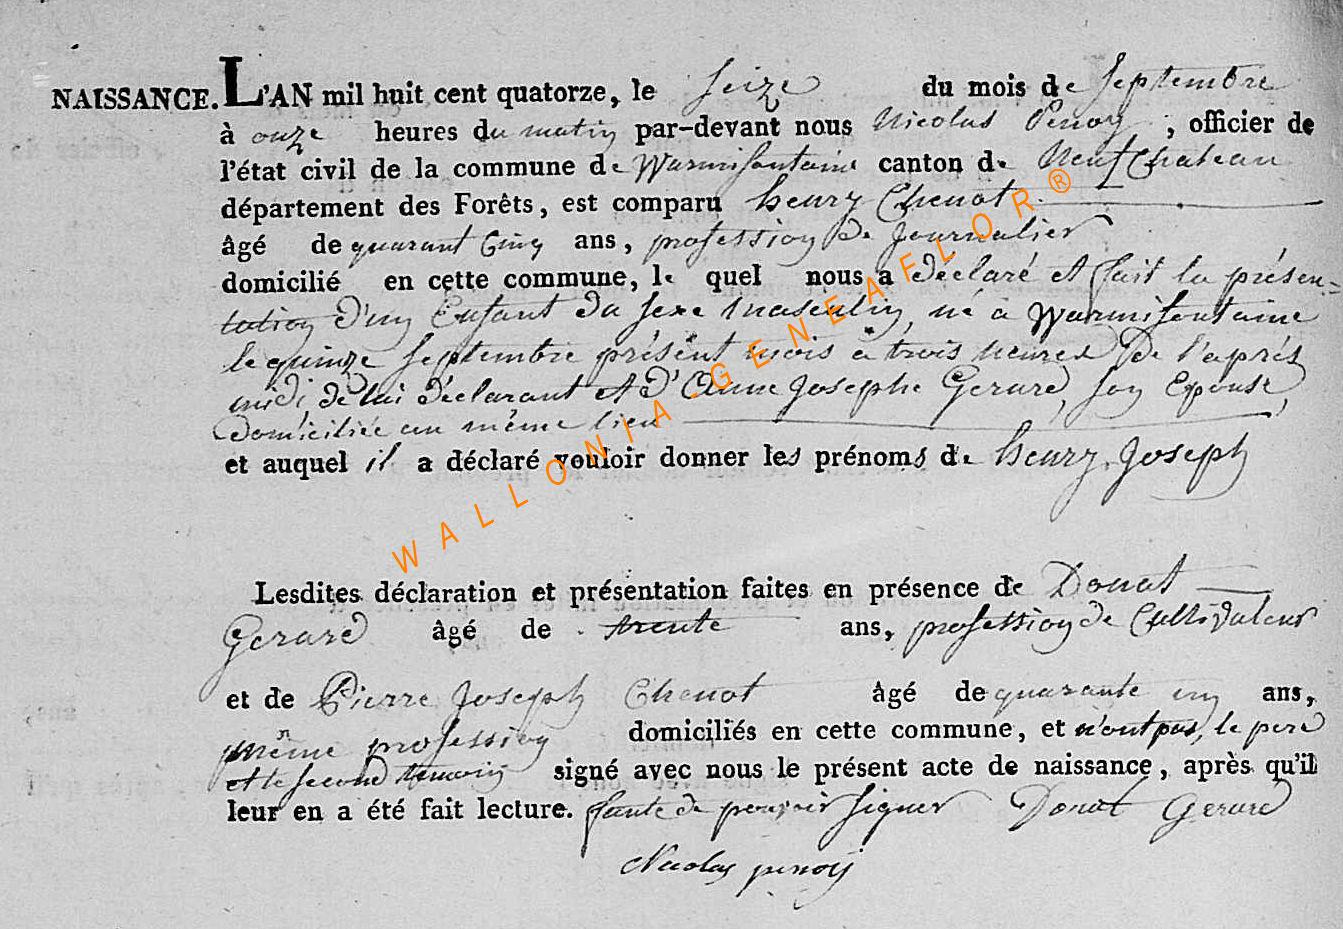 NAISSANCE. L'AN mil huit cent quatorze, le Seize du mois de Septembre
à onze heures du matin par-devant nous Nicolas Penoy, officier de
l'état civil de la commune de Warmifontaine canton de Neufchateau
département des Forêts, est comparu henry Chenot
âgé de quarant Cinq ans, profession de Journalier
domicilié en cette commune, le quel nous a déclaré et fait la présen-
tation d'un Enfant du sexe masculin, né à Warmifontaine
le quinze Septembre présent mois à trois heures De l'après
midi, de lui déclarant et D'Anne Josephe Gerard, son Epouse,
domiciliée au même lieu
et auquel il a déclaré vouloir donner les prénoms de henry Joseph
Lesdites déclaration et présentation faites en présence de Donat
Gerard âgé de trente ans, profession de Cultivateur
et de Pierre Joseph Chenot âgé de quarante un ans,
même profession domiciliés en cette commune, et n'ont pas, le pere
et le second temoin signé avec nous le présent acte de naissance, après qu'il
leur en a été fait lecture. faute de pouvoir signer Donat Gerard
Nicolas penoy
WALLONIA-GENEAFLOR®